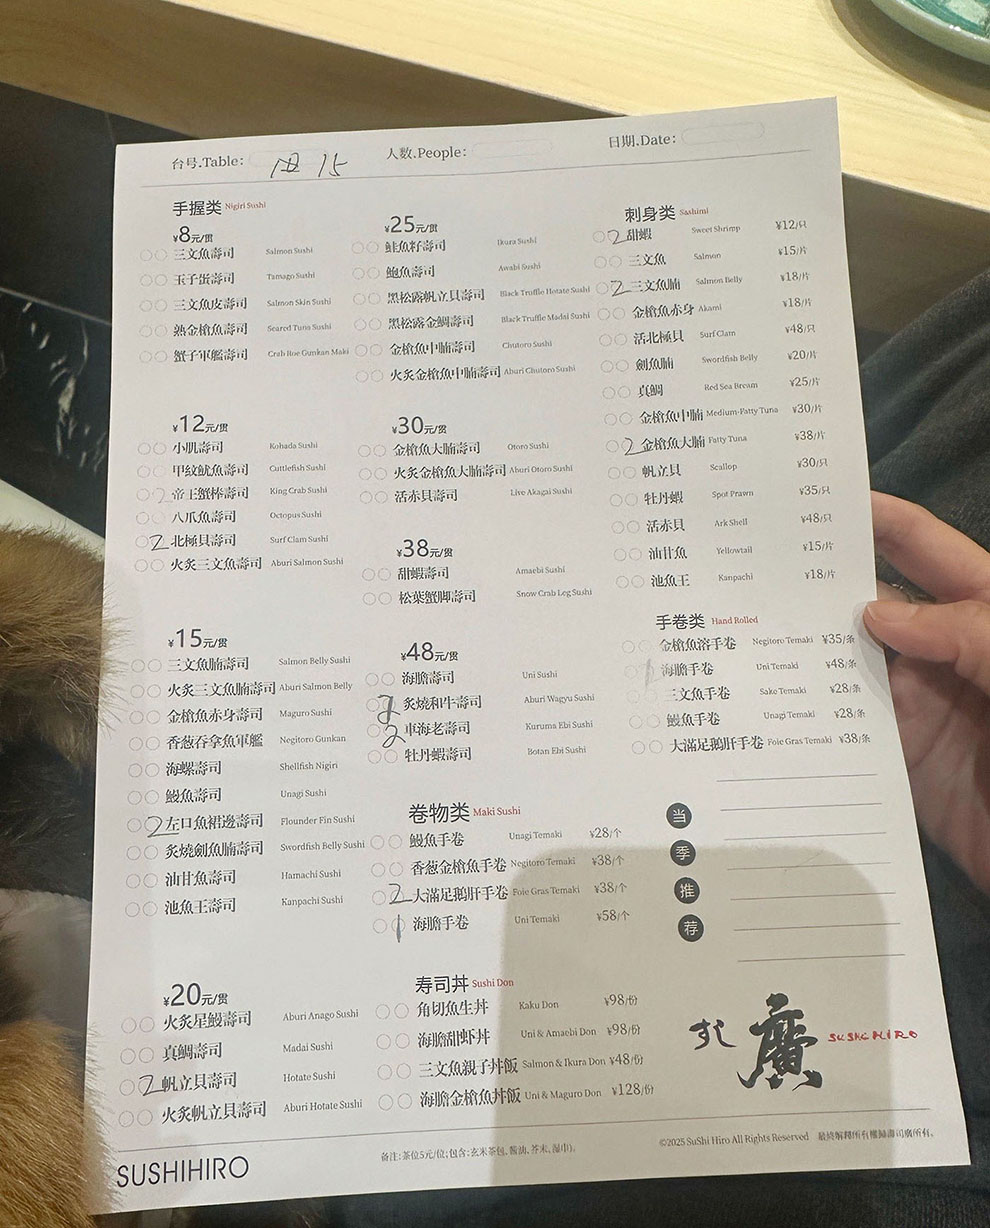 台号.Table: 15
人数.People:
日期.Date:
手握类 Nigiri Sushi
¥8元/贯
三文魚壽司 Salmon Sushi
玉子蛋壽司 Tamago Sushi
三文魚皮壽司 Salmon Skin Sushi
熟金槍魚壽司 Seared Tuna Sushi
蟹子軍艦壽司 Crab Roe Gunkan Maki
¥12元/贯
小肌壽司 Kohada Sushi
甲紋魷魚壽司 Cuttlefish Sushi
2 帝王蟹棒壽司 King Crab Sushi
八爪魚壽司 Octopus Sushi
2 北極貝壽司 Surf Clam Sushi
火炙三文魚壽司 Aburi Salmon Sushi
¥15元/贯
三文魚腩壽司 Salmon Belly Sushi
火炙三文魚腩壽司 Aburi Salmon Belly
金槍魚赤身壽司 Maguro Sushi
香葱吞拿魚軍艦 Negitoro Gunkan
海螺壽司 Shellfish Nigiri
鰻魚壽司 Unagi Sushi
2 左口魚裙邊壽司 Flounder Fin Sushi
炙燒劍魚腩壽司 Swordfish Belly Sushi
油甘魚壽司 Hamachi Sushi
池魚王壽司 Kanpachi Sushi
¥20元/贯
火炙星鰻壽司 Aburi Anago Sushi
真鯛壽司 Madai Sushi
2 帆立貝壽司 Hotate Sushi
火炙帆立貝壽司 Aburi Hotate Sushi
¥25元/贯
鮭魚籽壽司 Ikura Sushi
鮑魚壽司 Awabi Sushi
黑松露帆立貝壽司 Black Truffle Hotate Sushi
黑松露金鯛壽司 Black Truffle Madai Sushi
金槍魚中腩壽司 Chutoro Sushi
火炙金槍魚中腩壽司 Aburi Chutoro Sushi
¥30元/贯
金槍魚大腩壽司 Otoro Sushi
火炙金槍魚大腩壽司 Aburi Otoro Sushi
活赤貝壽司 Live Akagai Sushi
¥38元/贯
甜蝦壽司 Amaebi Sushi
松葉蟹脚壽司 Snow Crab Leg Sushi
¥48元/贯
海膽壽司 Uni Sushi
炙燒和牛壽司 Aburi Wagyu Sushi
2 車海老壽司 Kuruma Ebi Sushi
牡丹蝦壽司 Botan Ebi Sushi
卷物类 Maki Sushi
鰻魚手卷 Unagi Temaki ¥28/个
香葱金槍魚手卷 Negitoro Temaki ¥38/个
2 大滿足鵝肝手卷 Foie Gras Temaki ¥38/个
1 海膽手卷 Uni Temaki ¥58/个
寿司丼 Sushi Don
角切魚生丼 Kaku Don ¥98/份
海膽甜虾丼 Uni & Amaebi Don ¥98/份
三文魚親子丼飯 Salmon & Ikura Don ¥48/份
海膽金槍魚丼飯 Uni & Maguro Don ¥128/份
刺身类 Sashimi
2 甜蝦 Sweet Shrimp ¥12/只
三文魚 Salmon ¥15/片
2 三文魚腩 Salmon Belly ¥18/片
金槍魚赤身 Akami ¥18/片
活北極貝 Surf Clam ¥48/只
劍魚腩 Swordfish Belly ¥20/片
真鯛 Red Sea Bream ¥25/片
金槍魚中腩 Medium-Fatty Tuna ¥30/片
2 金槍魚大腩 Fatty Tuna ¥38/片
帆立貝 Scallop ¥30/只
牡丹蝦 Spot Prawn ¥35/只
活赤貝 Ark Shell ¥48/只
油甘魚 Yellowtail ¥15/片
池魚王 Kanpachi ¥18/片
手卷类 Hand Rolled
金槍魚溶手卷 Negitoro Temaki ¥35/条
1 海膽手卷 Uni Temaki ¥48/条
三文魚手卷 Sake Temaki ¥28/条
鰻魚手卷 Unagi Temaki ¥28/条
大滿足鵝肝手卷 Foie Gras Temaki ¥38/条
当
季
推
荐
すし 廣 SUSHI HIRO
SUSHIHIRO
备注:茶位5元/位;包含:玄米茶包,酱油,芥末,湿巾).
©2025 SuShi Hiro All Rights Reserved 最終解釋所有權歸壽司廣所有。